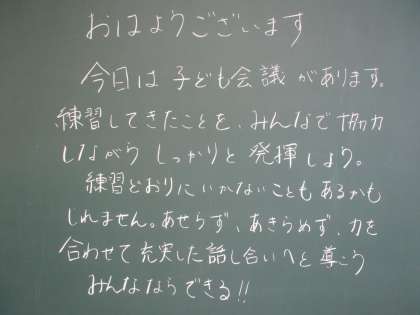 おはようございます
今日は子ども会議があります。
練習してきたことを、みんなで協力
しながら しっかりと 発揮しよう。
練習どおりにいかないこともあるかも
しれません。あせらず、あきらめず、力を
合わせて充実した話し合いへと導こう
みんなならできる!!